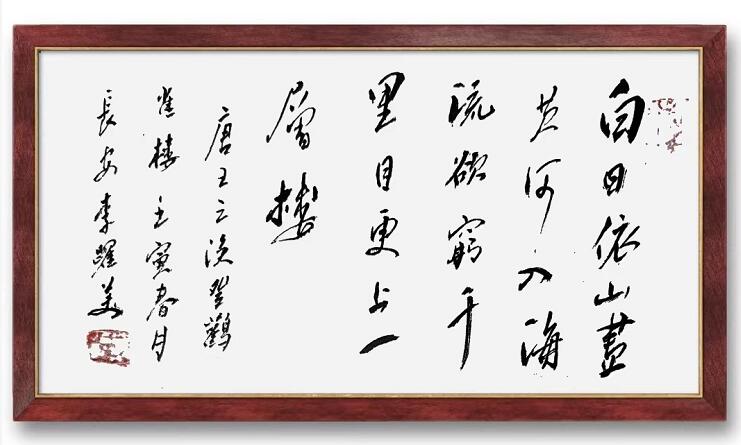 白日依山盡
黄河入海
流欲窮千
里目更上一
層樓
唐王之涣登鸛
雀樓壬寅春月
長安李耀美